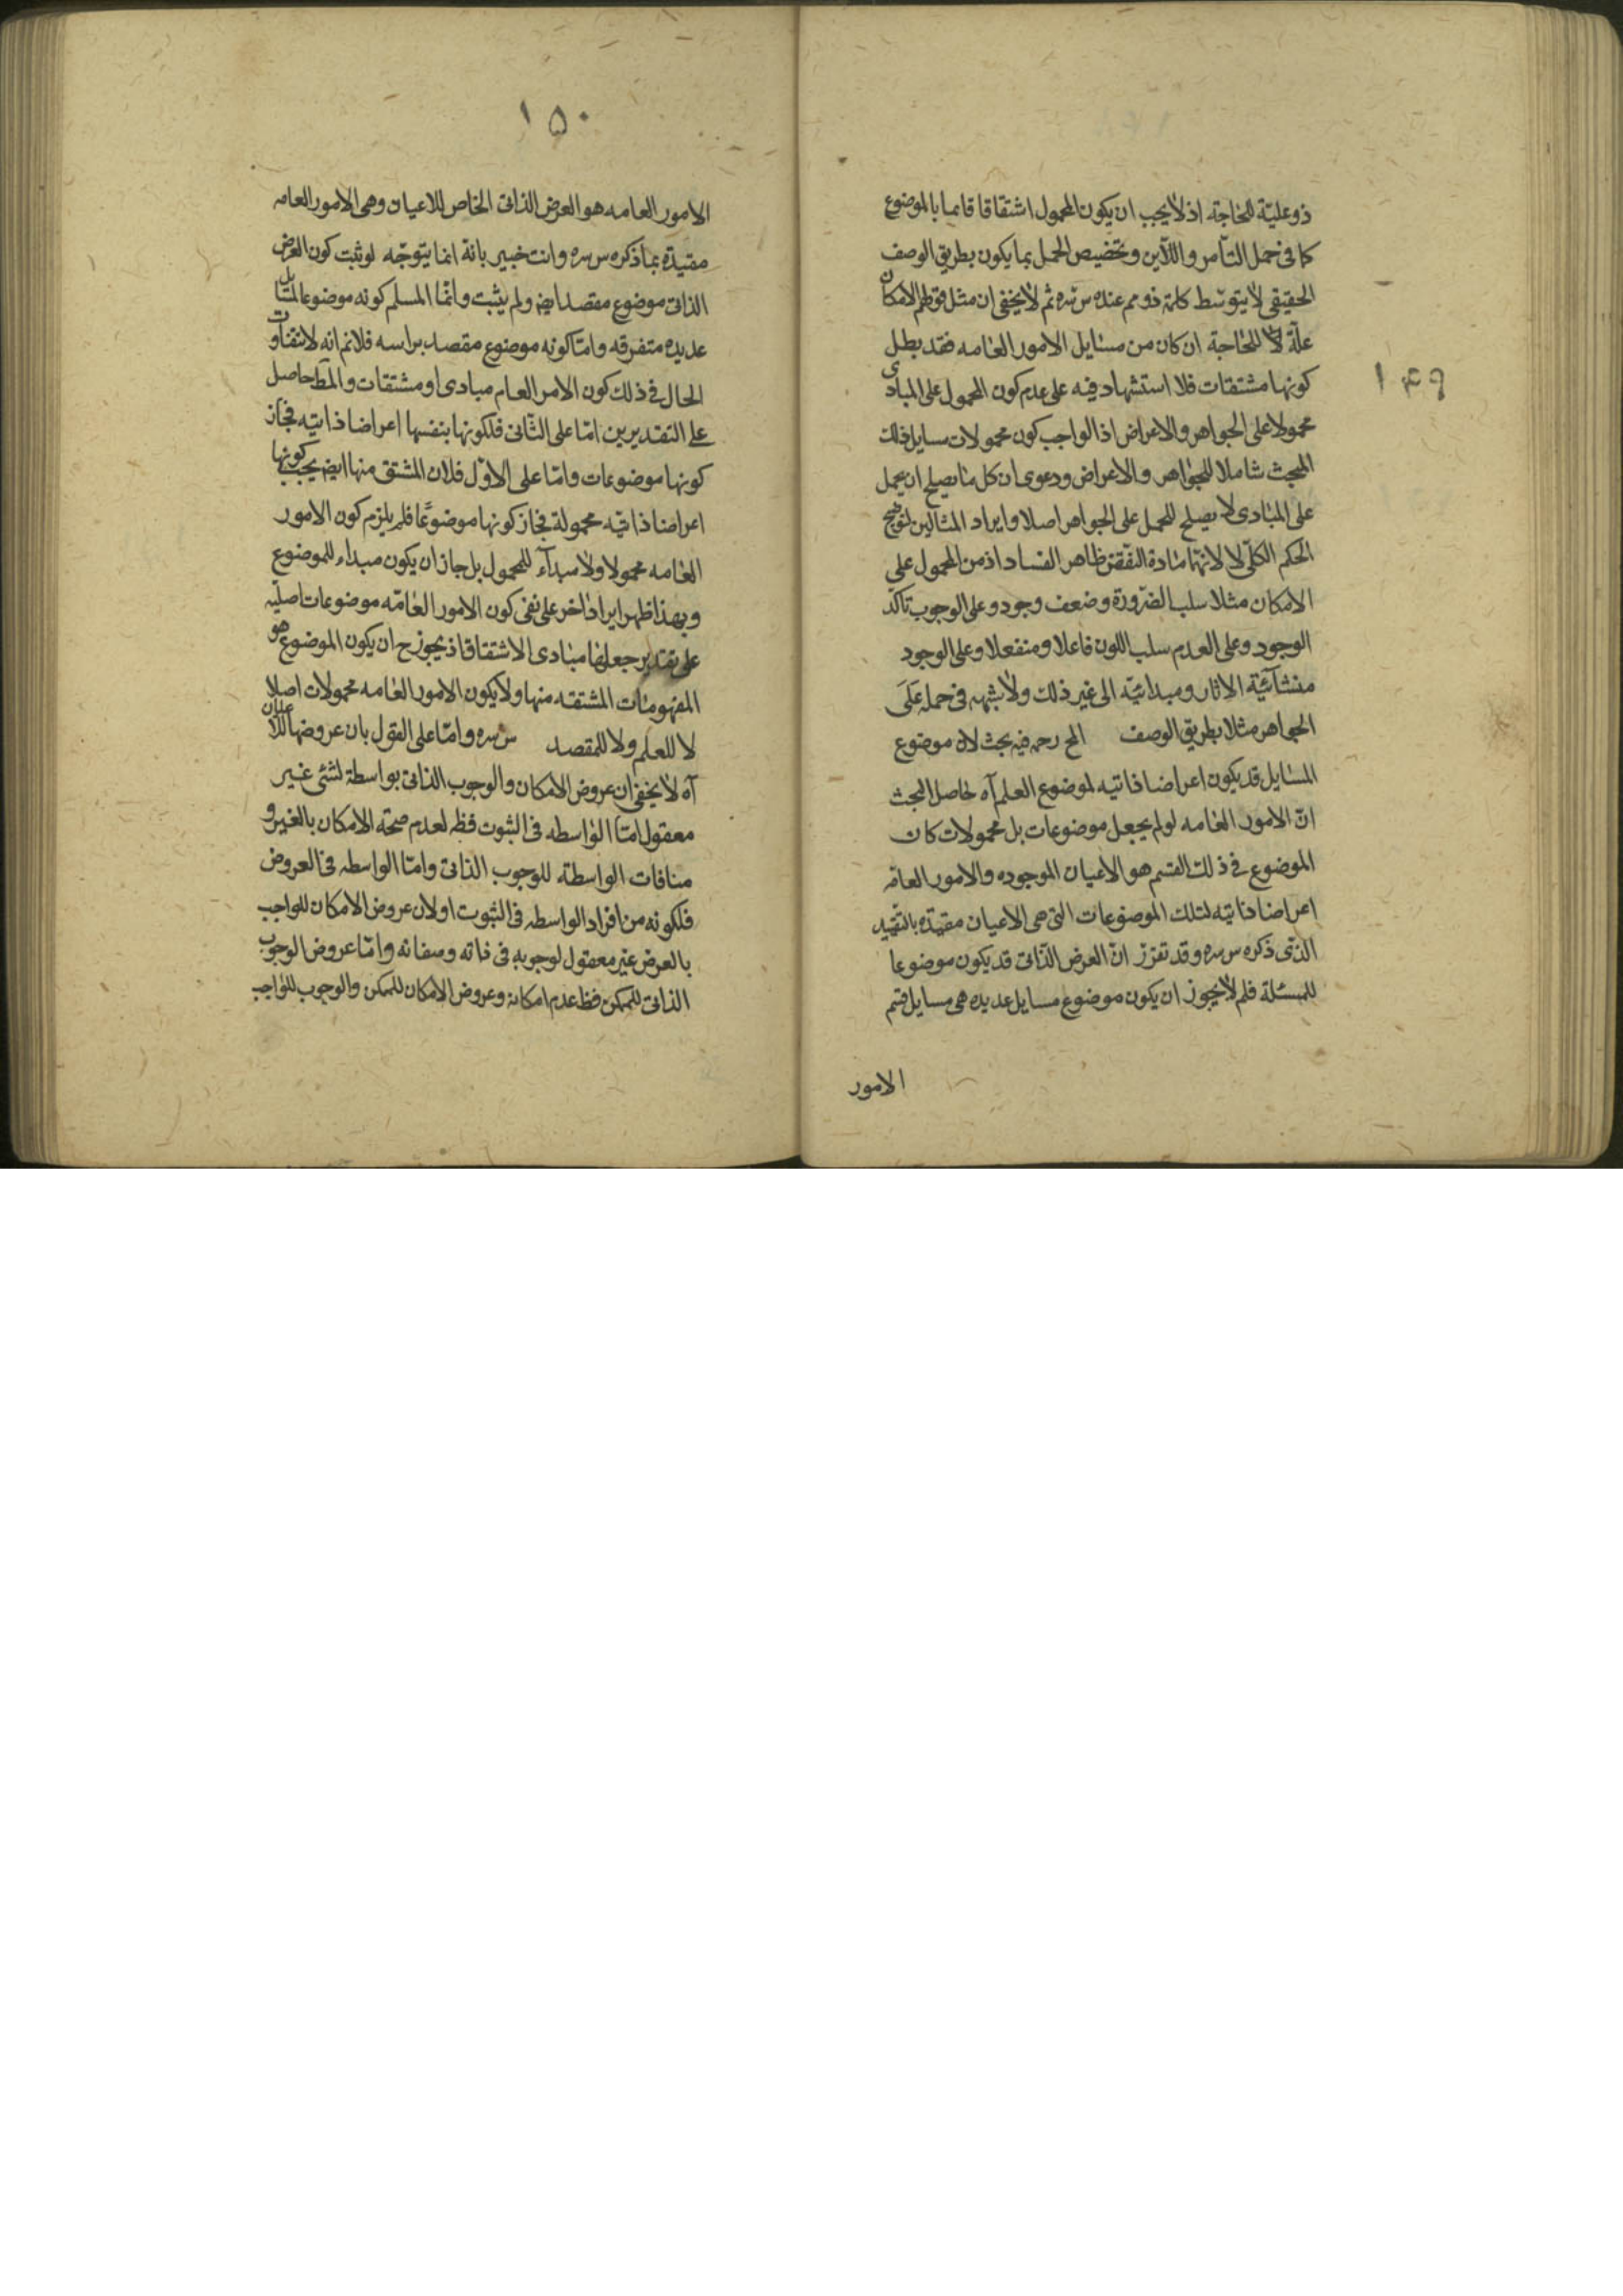 ١٤٩
ذو علية للحاجة اذ لا يجب ان يكون المحمول اشتقاقا قائما بالموضوع
كما في حمل التامر واللابن وتخصيص الحمل بما يكون بطريق الوصف
الحقيقي لا بتوسط كلمة ذو مم عنده س سره ثم لا يخفى ان مثل قولهم الامكان
علة للحاجة ان كان من مسايل الامور العامه فقد بطل
كونها مشتقات فلا استشهاد فيه على عدم كون المحمول على المبادى
محمولا على الجواهر والاعراض اذ الواجب كون محمولات مسايل ذلك
المبحث شاملا للجواهر والاعراض ودعوى ان كل ما يصلح ان يحمل
على المبادى لا يصلح للحمل على الجواهر اصلا وايراد المثالين لتوضيح
الحكم الكلى لا لانهما مادة النقض ظاهر الفساد اذ من المحمول على
الامكان مثلا سلب الضرورة وضعف وجود وعلى الوجوب تاكد
الوجود وعلى العدم سلب اللون فاعلا ومنفعلا وعلى الوجود
منشائية الاثار ومبدائية الى غير ذلك ولا شبهه في حمله على
الجواهر مثلا بطريق الوصف المح رحمه فيه بحث لان موضوع
المسايل قد يكون اعراضا ذاتيه لموضوع العلم آه حاصل البحث
ان الامور العامه لو لم يجعل موضوعات بل محمولات كان
الموضوع في ذلك القسم هو الاعيان الموجوده والامور العامه
اعراضا ذاتيه لتلك الموضوعات التي هي الاعيان مقيده بالتقييد
الذي ذكره س سره وقد تقرر ان العرض الذاتى قد يكون موضوعا
للمسئلة فلم لا يجوز ان يكون موضوع مسايل عديده هي مسايل قسم
الامور
١٥٠
الامور العامه هو العرض الذاتى الخاص للاعيان وهي الامور العامه
مقيدة بما ذكره س سره وانت خبير بانه انما يتوجه لو ثبت كون العرض
الذاتى موضوع مقصد ايض ولم يثبت وانما المسلم كونه موضوعا لمسايل
عديده متفرقه واما كونه موضوع مقصد براسه فلانم انه لا تتفاوت
الحال في ذلك كون الامر العام مبادى او مشتقات والمط حاصل
على التقديرين اما على الثانى فلكونها بنفسها اعراضا ذاتيه فجاز
كونها موضوعات واما على الاول فلان المشتق منها ايض يجب كونها
اعراضا ذاتيه محمولة فجاز كونها موضوعا فلم يلزم كون الامور
العامه محمولا ولا مبدآء للمحمول بل جاز ان يكون مبداء للموضوع
وبهذا ظهر ايراد اخر على نفى كون الامور العامه موضوعات اصليه
على تقدير جعلها مبادى الاشتقاق اذ يجوز ح ان يكون الموضوع هو
المفهومات المشتقه منها ولا يكون الامور العامه محمولات اصلا
لا للعلم ولا للمقصد س سره واما على القول بان عروضها للاعيان
آه لا يخفى ان عروض الامكان والوجوب الذاتى بواسطة لشئ غير
معقول اما الواسطه في الثبوت فظ لعدم صحة الامكان بالغير و
منافات الواسطة للوجوب الذاتى واما الواسطه في العروض
فلكونه من افراد الواسطه في الثبوت او لان عروض الامكان للواجب
بالعرض غير معقول لوجوبه في ذاته وصفاته واما عروض الوجوب
الذاتى للممكن فظ عدم امكانه وعروض الامكان للممكن والوجوب للواجب